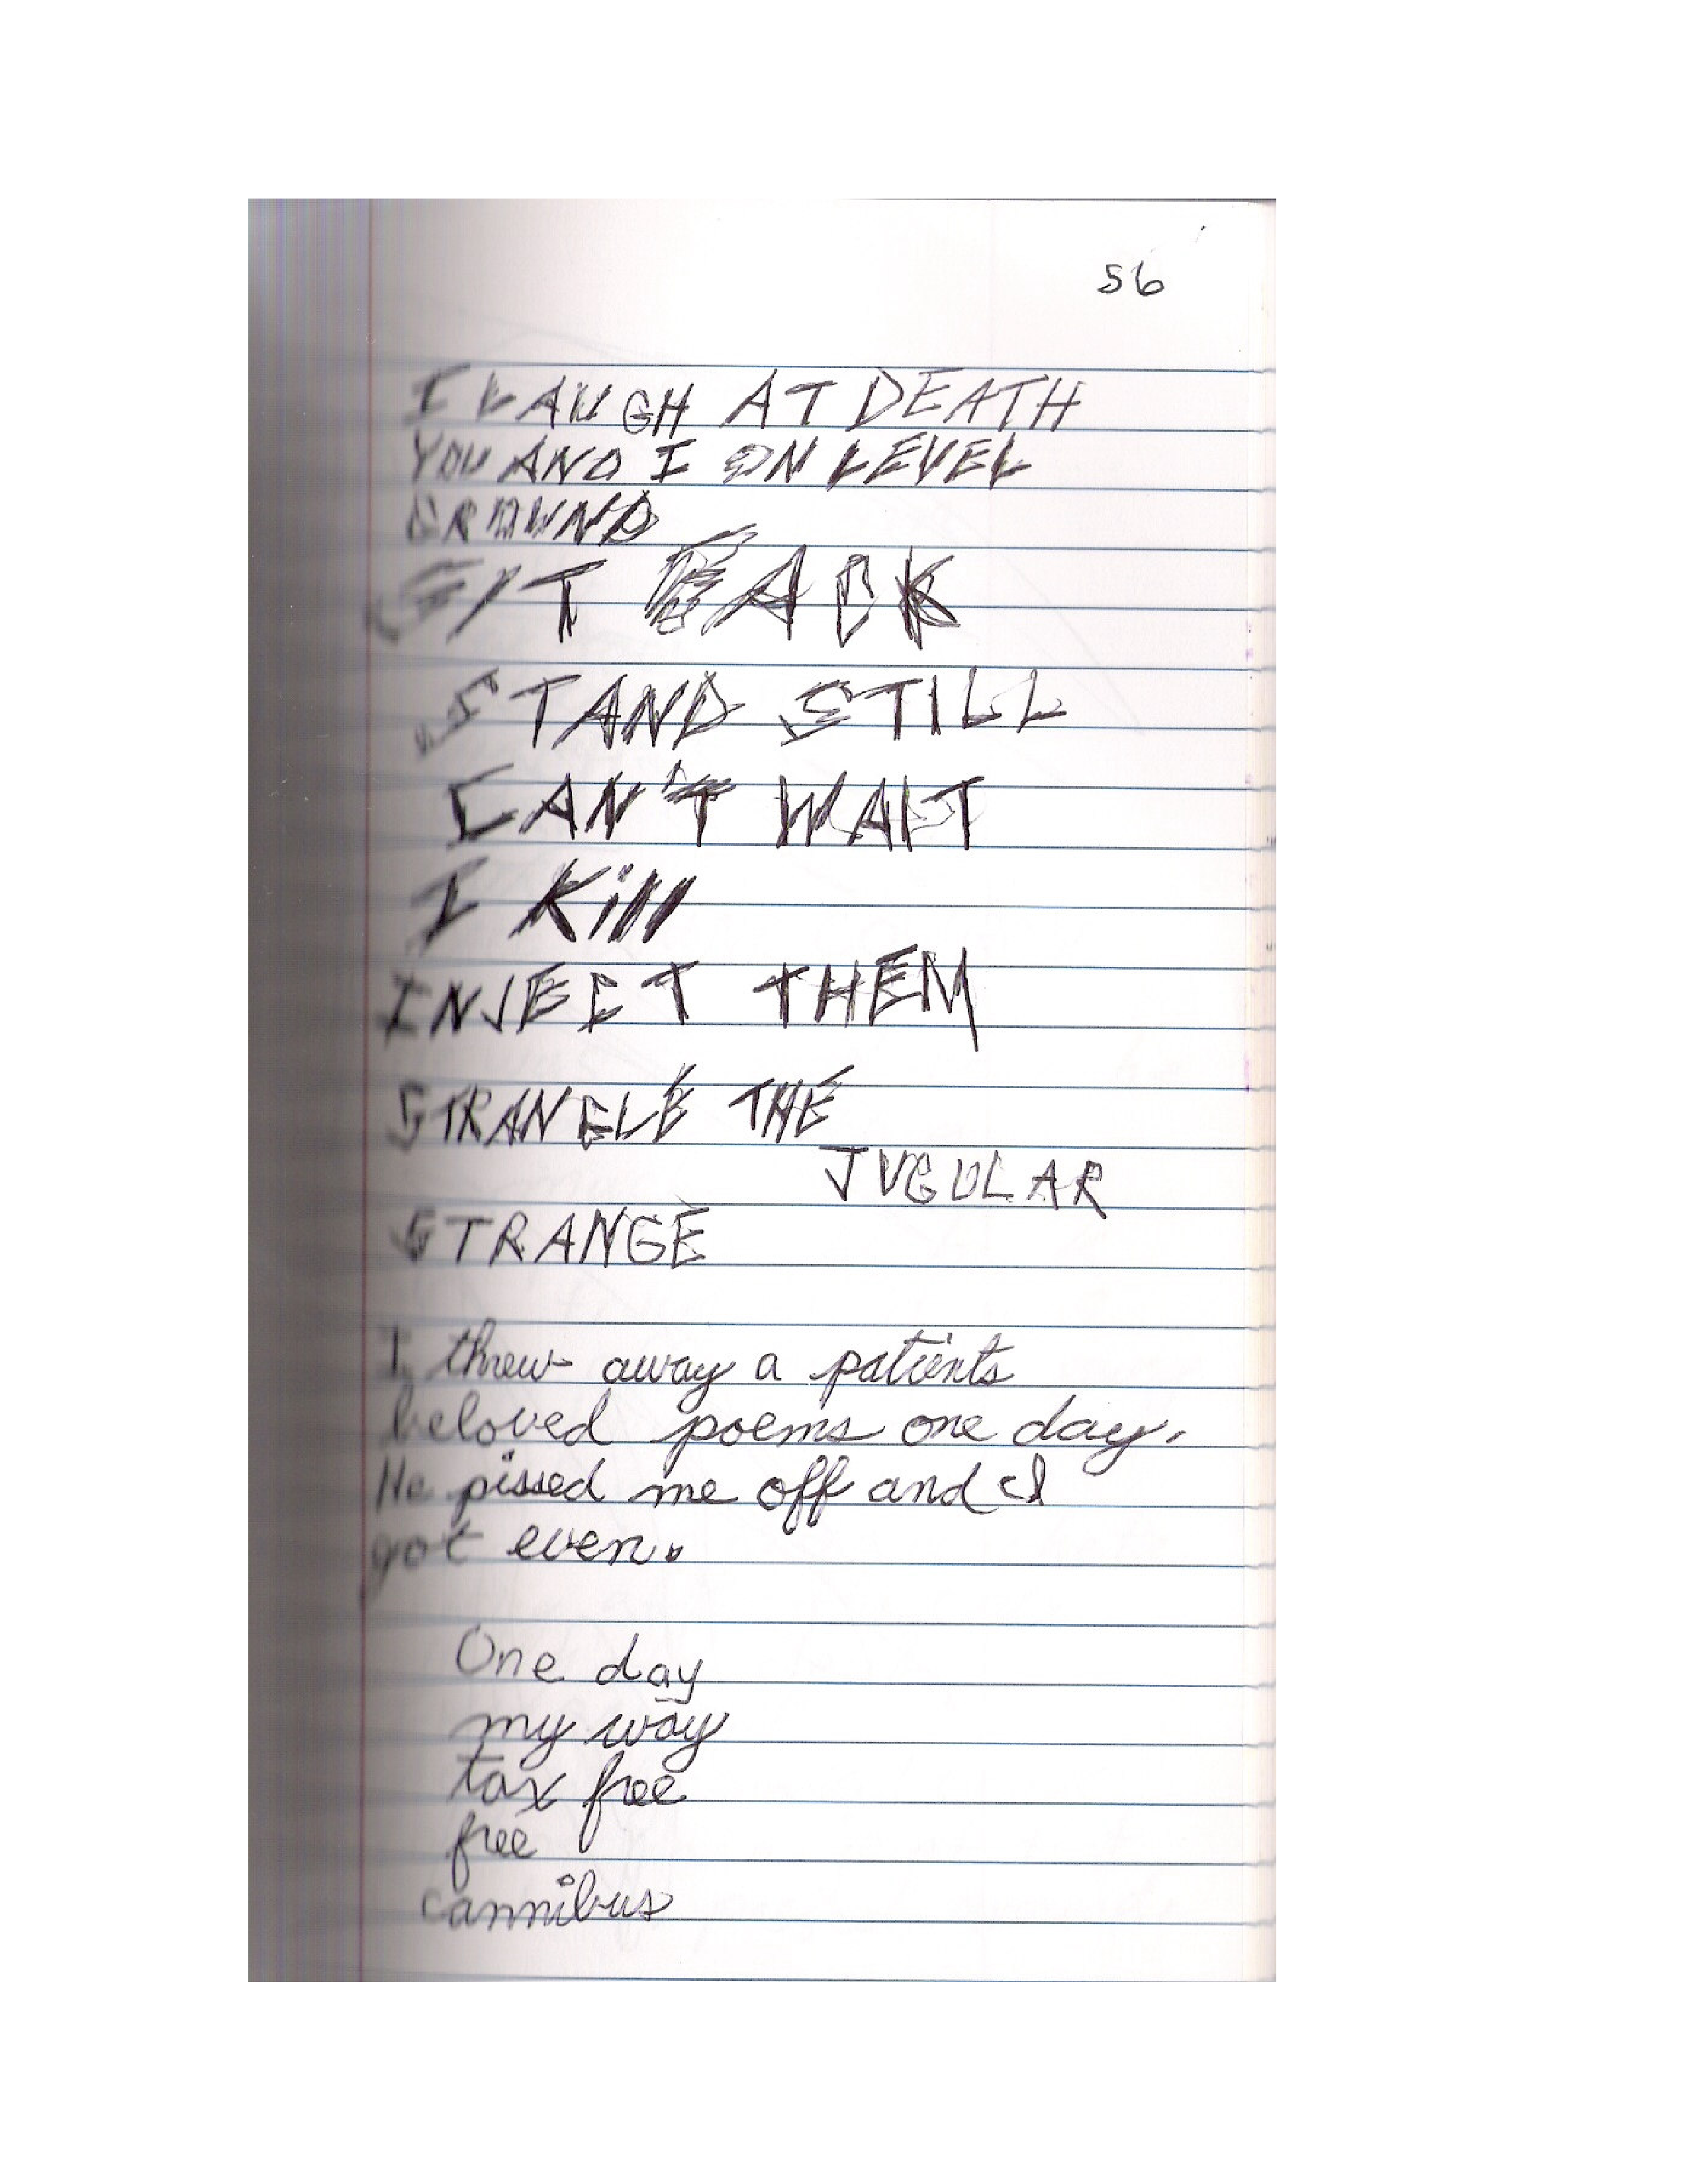 56
I LAUGH AT DEATH
YOU AND I ON LEVEL
GROUND
GIT BACK
STAND STILL
CAN'T WAIT
I Kill
INJECT THEM
STRANGLE THE
JUGULAR
STRANGE
I threw away a patients
beloved poems one day.
He pissed me off and I
got even.
One day
my way
tax free
free
cannibus